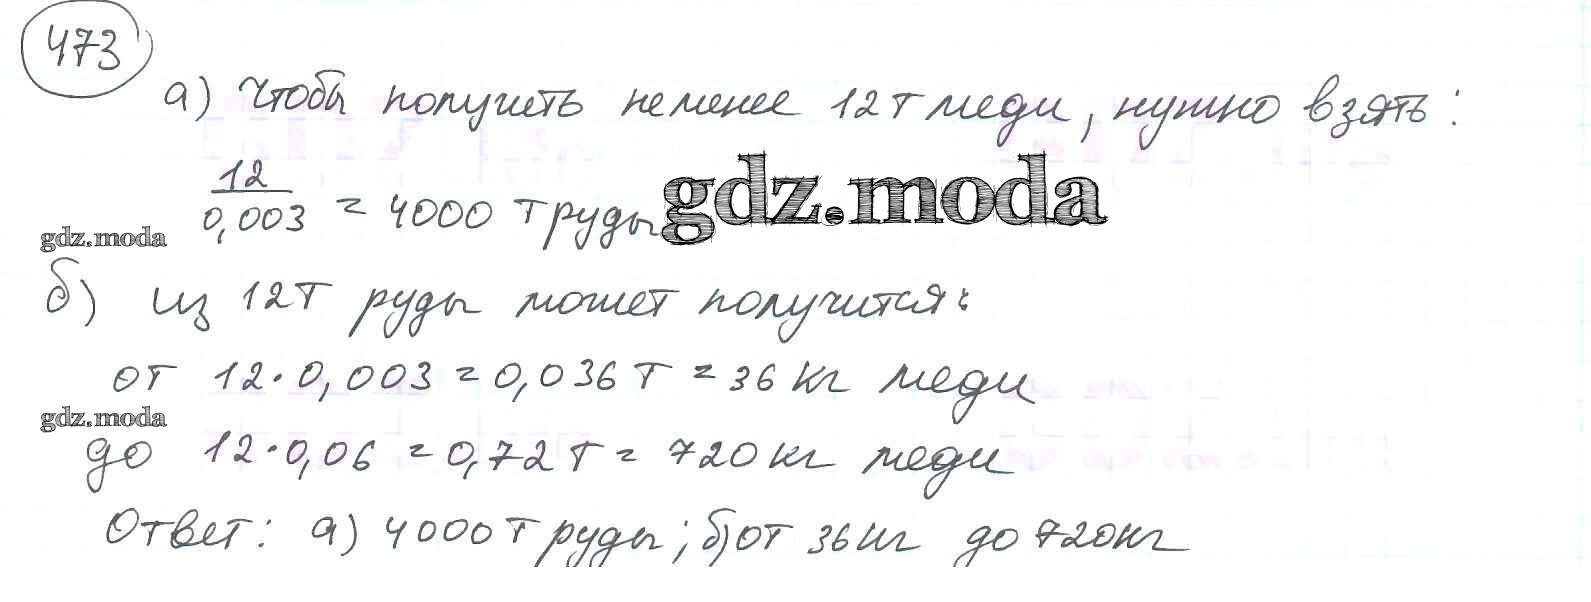 473
а) Чтобы получить не менее 12 т меди, нужно взять:
12
0,003 = 4000 т руды
gdz.moda
gdz.moda
б) из 12 т руды может получится:
от 12·0,003 = 0,036 т = 36 кг меди
gdz.moda
до 12·0,06 = 0,72 т = 720 кг меди
Ответ: а) 4000 т руды; б) от 36 кг до 720 кг